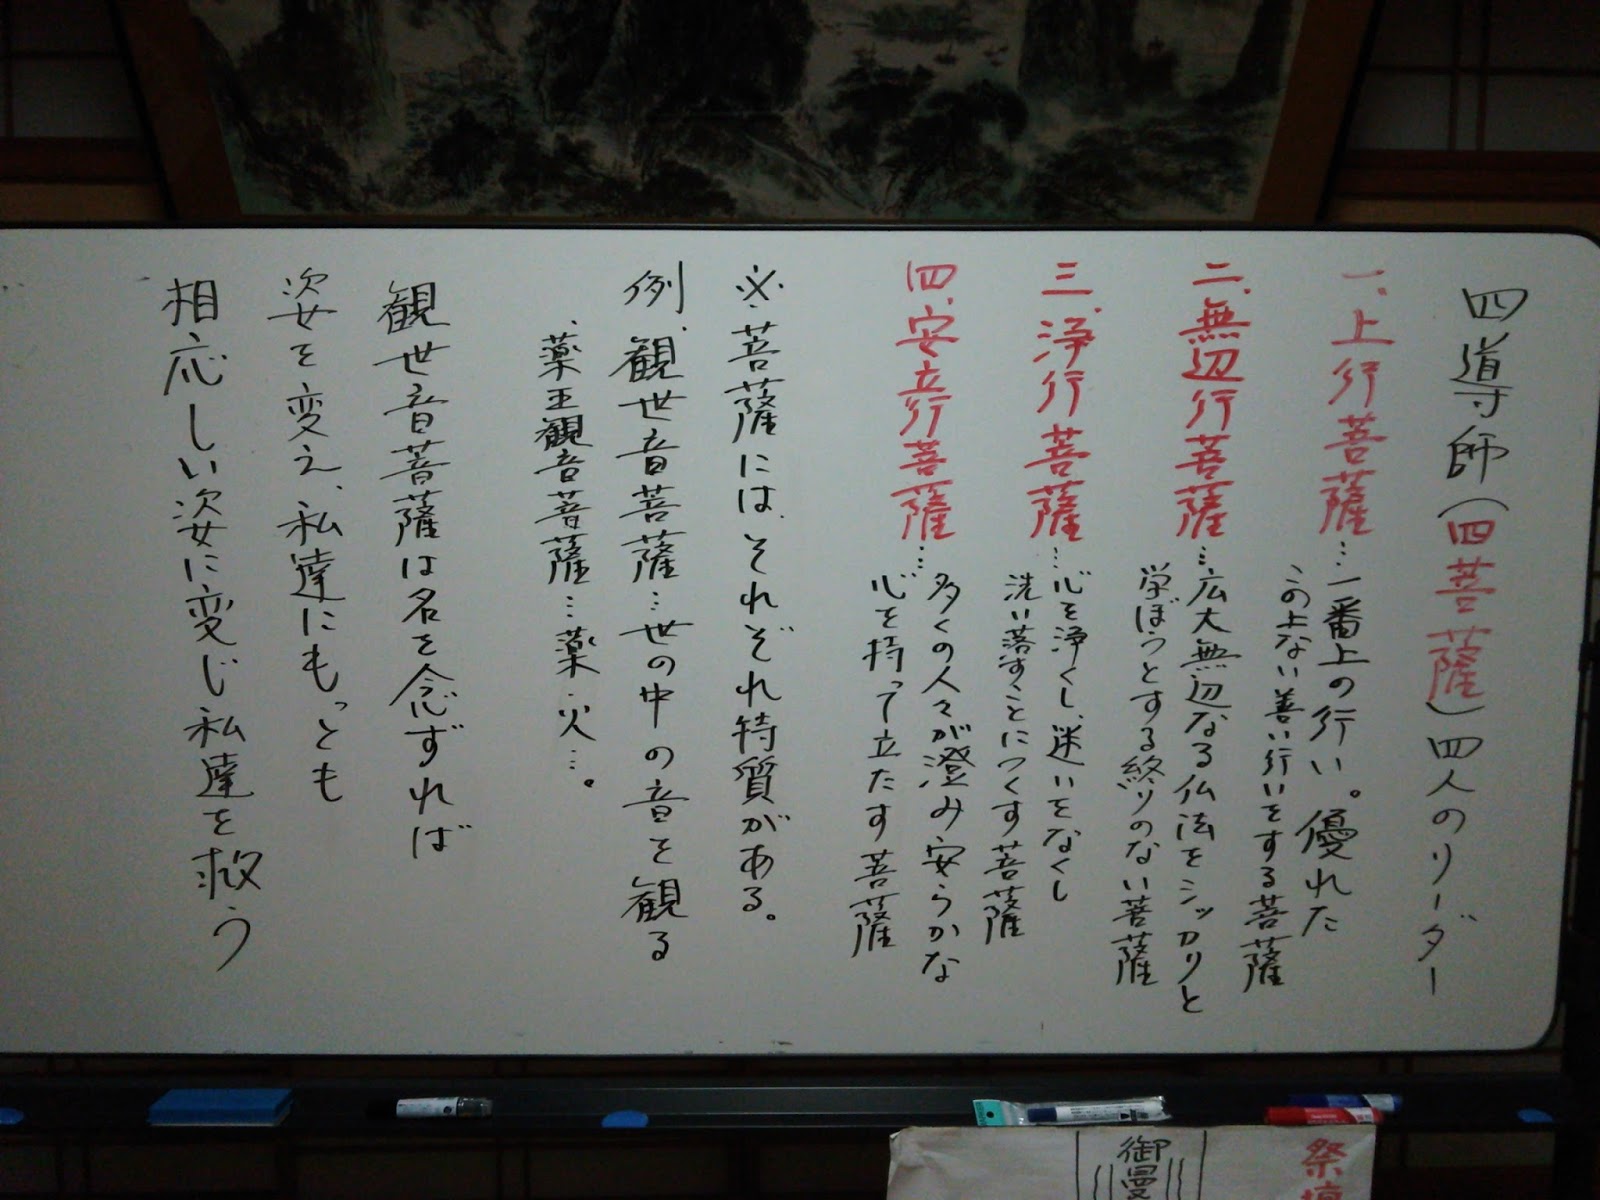 四導師(四菩薩)四人のリーダー
一、上行菩薩…一番上の行い。優れた
この上ない善い行いをする菩薩
二、無辺行菩薩…広大無辺なる仏法をシッカリと
学ぼうとする終りのない菩薩
三、浄行菩薩…心を浄くし、迷いをなくし
洗い落すことにつくす菩薩
四、安立行菩薩…多くの人々が澄み安らかな
心を持って立たす菩薩
※菩薩には、それぞれ特質がある。
例、観世音菩薩…世の中の音を観る
、薬王観音菩薩…薬・火…。
観世音菩薩は名を念ずれば
姿を変え、私達にもっとも
相応しい姿に変じ私達を救う
祭壇
御曼